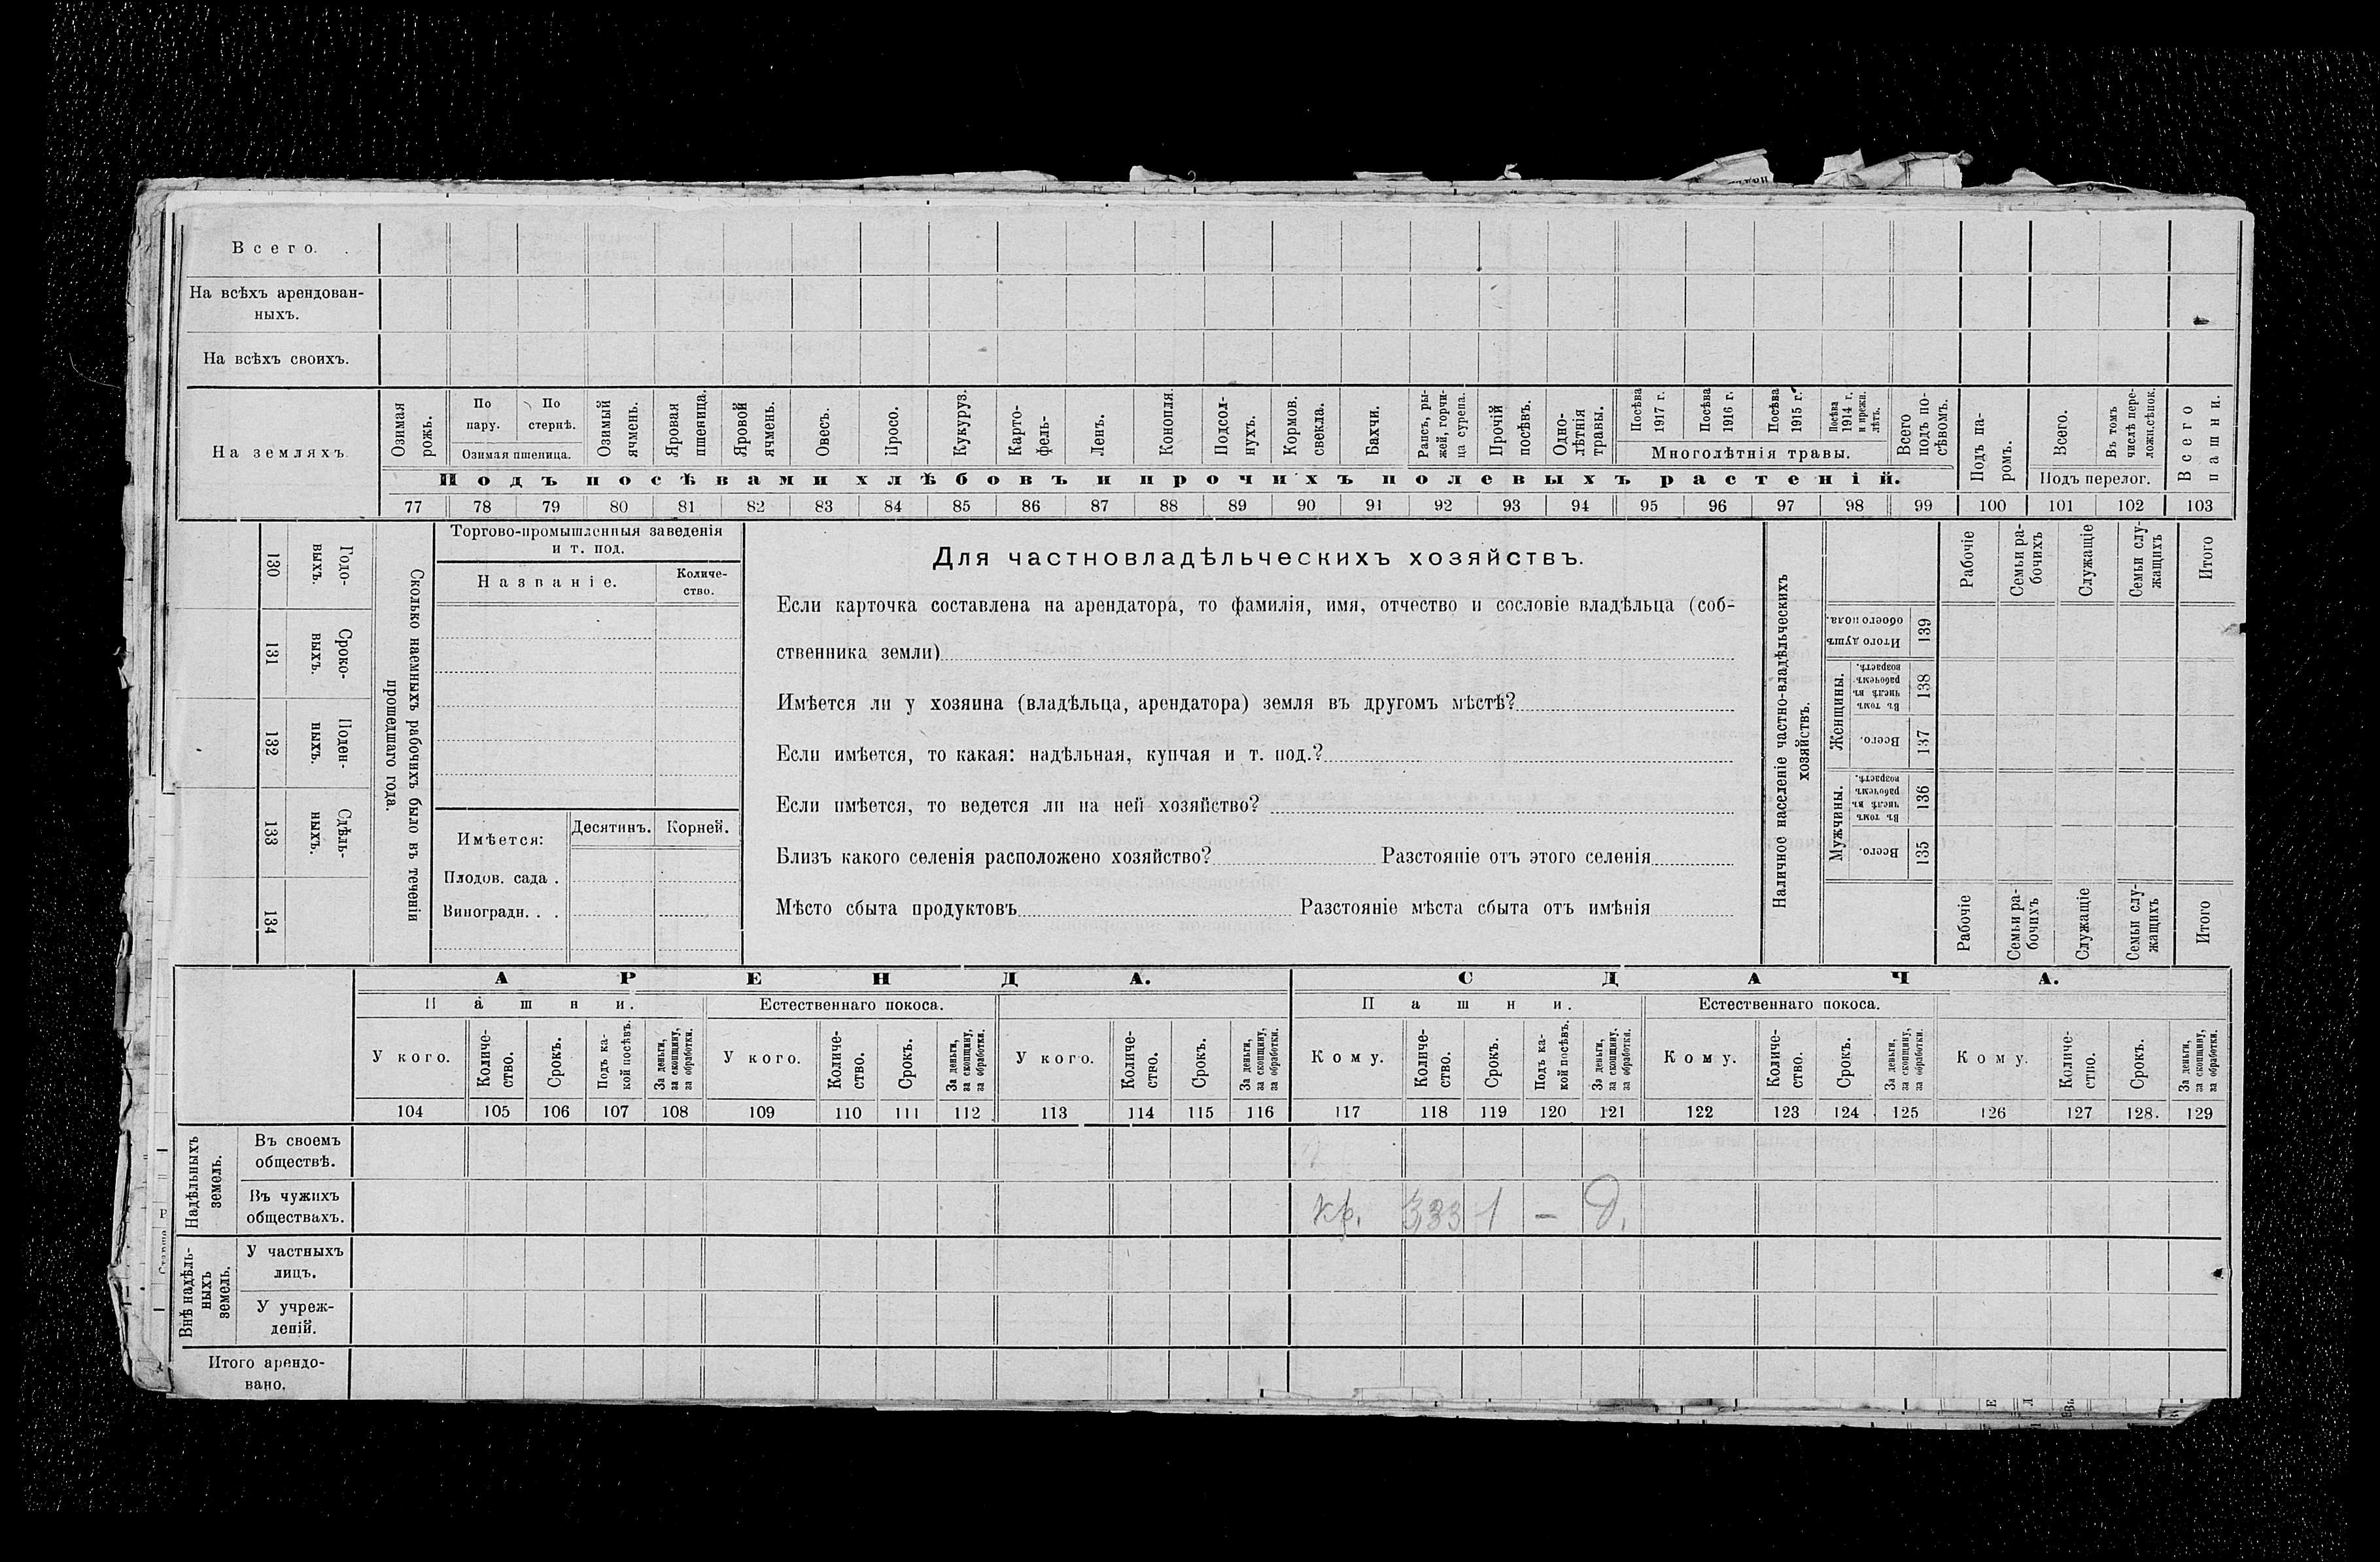 Всего.
На всѣхъ арендован-
ныхъ.
На всѣхъ своихъ.
На земляхъ
Озимая рожь.
По пару.
По стернѣ.
Озимая пшеница.
Озимый ячмень.
Яровая пшеница.
Яровой ячмень.
Овесъ.
Просо.
Кукуруз.
Карто-
фель-
Ленъ.
Конопля.
Подсол-
нухъ.
Кормов. свекла.
Бахчи.
Рапсъ, ры-
жей, горчи-
ца сурепа.
Прочій посѣвъ.
Одно-
лѣтнія
травы.
Посѣва 1917 г.
Посѣва 1916 г.
Посѣва 1915 г.
Посѣва
1914 г.
и прежн.
лѣтъ.
Многолѣтнія травы.
Всего
подъ по-
сѣвомъ.
Подъ па-
ромъ.
Всего.
Въ томъ
числѣ пере-
ложн.сѣнок.
Подъ перелог.
Всего пашни.
Подъ посѣвами хлѣбовъ и прочихъ полевыхъ растеній.
77 78 79 80 81 82 83 84 85 86 87 88 89 90 91 92 93 94 95 96 97 98 99 100 101 102 103
130 Годо-
выхъ.
131 Сроко-
выхъ.
132 Поден-
ныхъ.
133 Сдѣль-
ныхъ.
134
Сколько наемныхъ рабочихъ было въ теченіи
прошедшаго года.
Торгово-промышленныя заведенія
и т. под.
Названіе.
Количе-
ство.
Имѣется:
Десятинъ. Корней.
Плодов. сада .
Виноградн. . .
Для частновладѣльческихъ хозяйствъ.
Если карточка составлена на арендатора, то фамилія, имя, отчество и сословіе владѣльца (соб-
ственника земли)
Имѣется ли у хозяина (владѣльца, арендатора) земля въ другомъ мѣстѣ?
Если имѣется, то какая: надѣльная, купчая и т. под.?
Если имѣется, то ведется ли на ней хозяйство?
Близъ какого селенія расположено хозяйство? Разстояніе отъ этого селенія
Мѣсто сбыта продуктовъ Разстояніе мѣста сбыта отъ имѣнія
Наличное населеніе частно-владѣльческихъ
хозяйствъ.
Рабочіе
Семьи ра-
бочихъ
Служащіе
Семьи слу-
жащихъ
Итого
Итого душъ
обоего пола.
139
Женщины.
Въ томъ
числѣ въ
рабочемъ
возрастѣ.
138
Всего.
137
Мужчины.
Въ томъ
числѣ въ
рабочемъ
возрастѣ.
136
Всего.
135
Рабочіе
Семьи ра-
бочихъ
Служащіе
Семьи слу-
жащихъ
Итого
АРЕНДА.
СДАЧА.
Пашни.
Естественнаго покоса.
Пашни.
Естественнаго покоса.
У кого.
Количе-
ство.
Срокъ.
Подъ ка-
кой посѣвъ.
За деньги,
за скопщину,
за обработки.
У кого.
Количе-
ство.
Срокъ.
За деньги,
за скопщину,
за обработки.
У кого.
Количе-
ство.
Срокъ.
За деньги,
за скопщину,
за обработки.
Кому.
Количе-
ство.
Срокъ.
Подъ ка-
кой посѣвъ.
За деньги,
за скопщину,
за обработки.
Кому.
Количе-
ство.
Срокъ.
За деньги,
за скопщину,
за обработки.
Кому.
Количе-
ство.
Срокъ.
За деньги,
за скопщину,
за обработки.
104 105 106 107 108 109 110 111 112 113 114 115 116 117 118 119 120 121 122 123 124 125 126 127 128. 129
Надѣльныхъ
земель.
Въ своемъ
обществѣ.
Въ чужихъ
обществахъ.
кр. 3,33 1 — д.
Внѣ надѣль-
ныхъ
земель.
У частныхъ
лицъ.
У учреж-
деній.
Итого арендо-
вано.